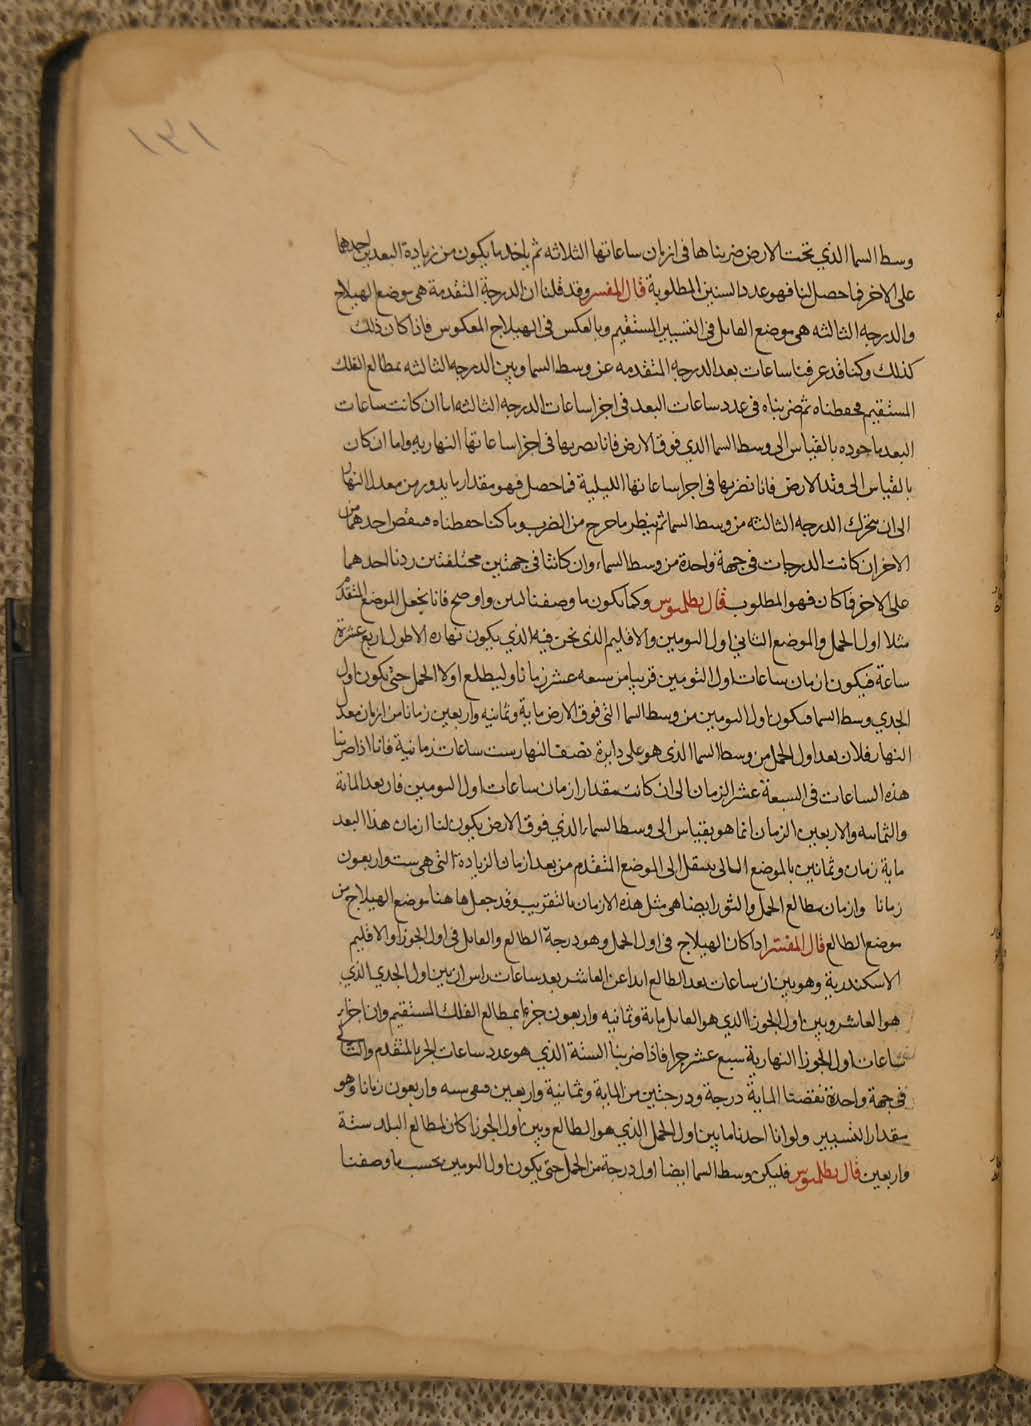 ١٣١
وسط السما الذي تحت الارض ضربناها فى ازمان ساعاتها الثلاثه ثم ياخد ما يكون من زيادة البعدين احدهما
على الاخر فما حصل لنا فهو عدد السنين المطلوبة قال المفسر وقد قلنا ان الدرجة المتقدمة هى موضع الهيلاج
والدرجه الثالثه هى موضع القاىل فى التسيير المستقيم وبالعكس فى الهيلاج المعكوس فاذا كان ذلك
كذلك وكنا قد عرفنا ساعات بعد الدرجه المتقدمه عن وسط السما وبين الدرجه الثالثه بمطالع الفلك
المستقيم فحفطناه ثم ضربناه فى عدد ساعات البعد فى اجزا ساعات الدرجه الثالثه اما ان كانت ساعات
البعد ماخوده بالقياس الى وسط السما الدي فوق الارض فانا نصربها فى اجزا ساعاتها النهاريه واما ان كان
بالقياس الى وتد الارض فانا نضربها فى اجزا ساعاتها الليلية فما حصل فهو مقدار ما يدور من معدل النهار
الى ان يتحرك الدرجه الثالثه من وسط السما ثم ينظر ما خرج من الضرب وما كنا حفطناه فىنقص احدهما من
الاخر ان كانت الدرجات فى جهة واحدة من وسط السماء وان كانتا فى جهتين مختلفتين زدنا احدهما
على الاخر فما كان فهو المطلوب قال بطلميوس وكيما يكون ما وصفنا ابين واوضح فانا نجعل الموضع المتقدم
مثلا اول الحمل والموضع الثانى اول التومين والاقليم الذى نحن فيه الذي يكون نهاره الاطول اربع عشرة
ساعة فيكون ازمان ساعات اول التومين قريبا من سبعه عشر زمانا وليطلع اولا الحمل حتى يكون اول
الجدي وسط السما فيكون اول التومين من وسط السما التى فوق الارض ماية وثمانيه واربعين زمانا من ازمان معدل
النهار فلان بعد اول الحمل من وسط السما الذى هو على دايرة نصف النهار ست ساعات زمانية فانا اذا ضربنا
هذه الساعات فى السبعة عشر الزمان الى ان كانت مقدار ازمان ساعات اول التومين فان بعد الماية
والثمانىه والاربعين الزمان انما هو بقياس الى وسط السماء الذي فوق الارض يكون لنا ازمان هذا البعد
ماية زمان وثمانين بالموضع التالى ينتقل الى الموضع المتقدم من بعد ازمان الزيادة التى هى ست واربعون
زمانا وازمان مطالع الحمل والثور ايضا هى مثل هذه الازمان بالتقريب وقد جعلها هنا موضع الهيلاج من
موضع الطالع قال المفسر اذا كان الهيلاج فى اول الحمل وهو درجة الطالع والقاىل فى اول الجوزا والاقليم
الاسكندرية وهو بين ان ساعات بعد الطالع ابدا عن العاشر بعد ساعات راس ان بين اول الجدي الذي
هو العاشر وبين اول الجوزا الذي هو القاىل ماىة وثمانيه واربعون جزءا بمطالع الفلك المستقيم وان اجزا
ساعات اول الجوزا النهارية سبع عشر جزا فاذا ضربنا الستة الذي هو عدد ساعات الجزء المتقدم والثانى
فى جهة واحدة نقصنا الماية درجة ودرجتين من الماية وثمانية واربعين فىبقى سته واربعون زمانا وهو
مقدار التسيير ولو انا اخدنا ما بين اول الحمل الذي هو الطالع وبين اول الجوزا كان لمطالع البلد ستة
واربعين قال بطلميوس فليكن وسط السما ايضا اول درجة من الحمل حتى يكون اول التومين بحسب ما وصفنا